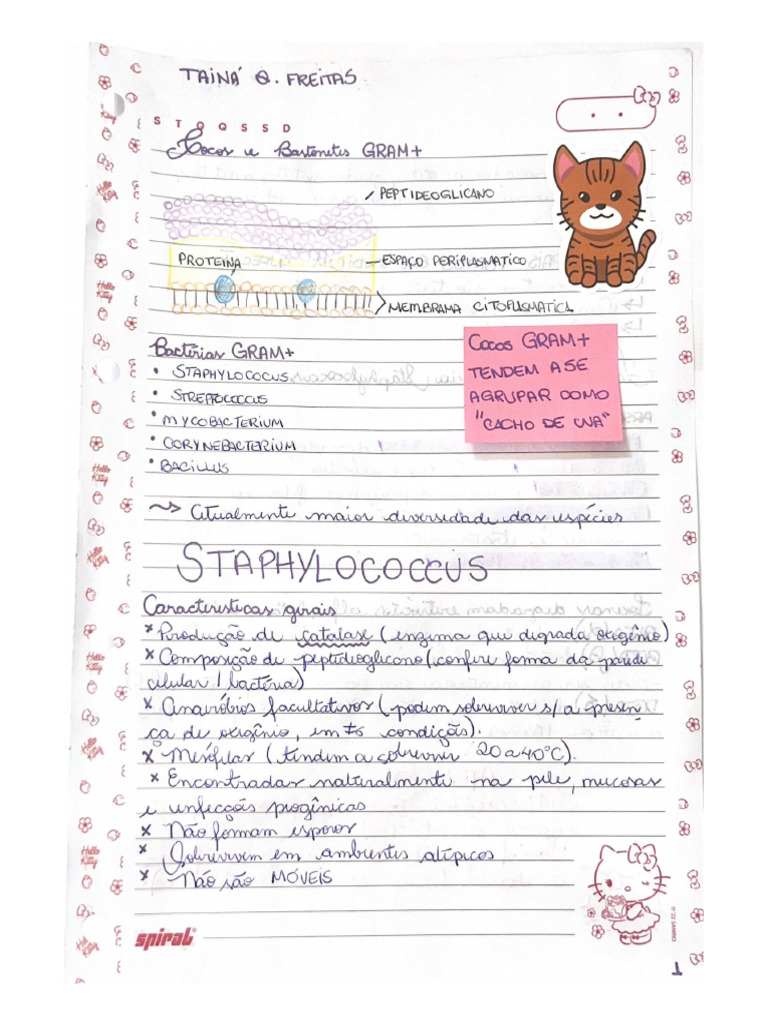 TAINÁ Q. FREITAS
S T Q Q S S D
Cocos e Bastonetes GRAM+
PEPTIDEOGLICANO
PROTEÍNA
ESPAÇO PERIPLASMATICO
MEMBRANA CITOPLASMATICA
Bactérias GRAM+
• STAPHYLOCOCUS
• STREPTOCOCCUS
• MYCOBACTERIUM
• CORYNEBACTERIUM
• BACILLUS
COCOS GRAM+
TENDEM A SE
AGRUPAR COMO
"CACHO DE UVA"
~> Atualmente maior diversidade das espécies
STAPHYLOCOCCUS
Caracteristicas gerais
x Produção de catalase (enzima que degrada oxigênio)
x Composição de peptideoglicono (confere forma da parede
celular / bactéria)
x Anaróbios facultativos (podem sobreviver s/ a presen-
ça de oxigênio, em ≠s condições).
x Mesófilas (tendem a sobreviver 20 a 40°C).
x Encontradas naturalmente na pele, mucosas
e infecções piogênicas
x Não formam esporos
x Sobrevivem em ambientes atípicos
x Não são MÓVEIS
spiral
1